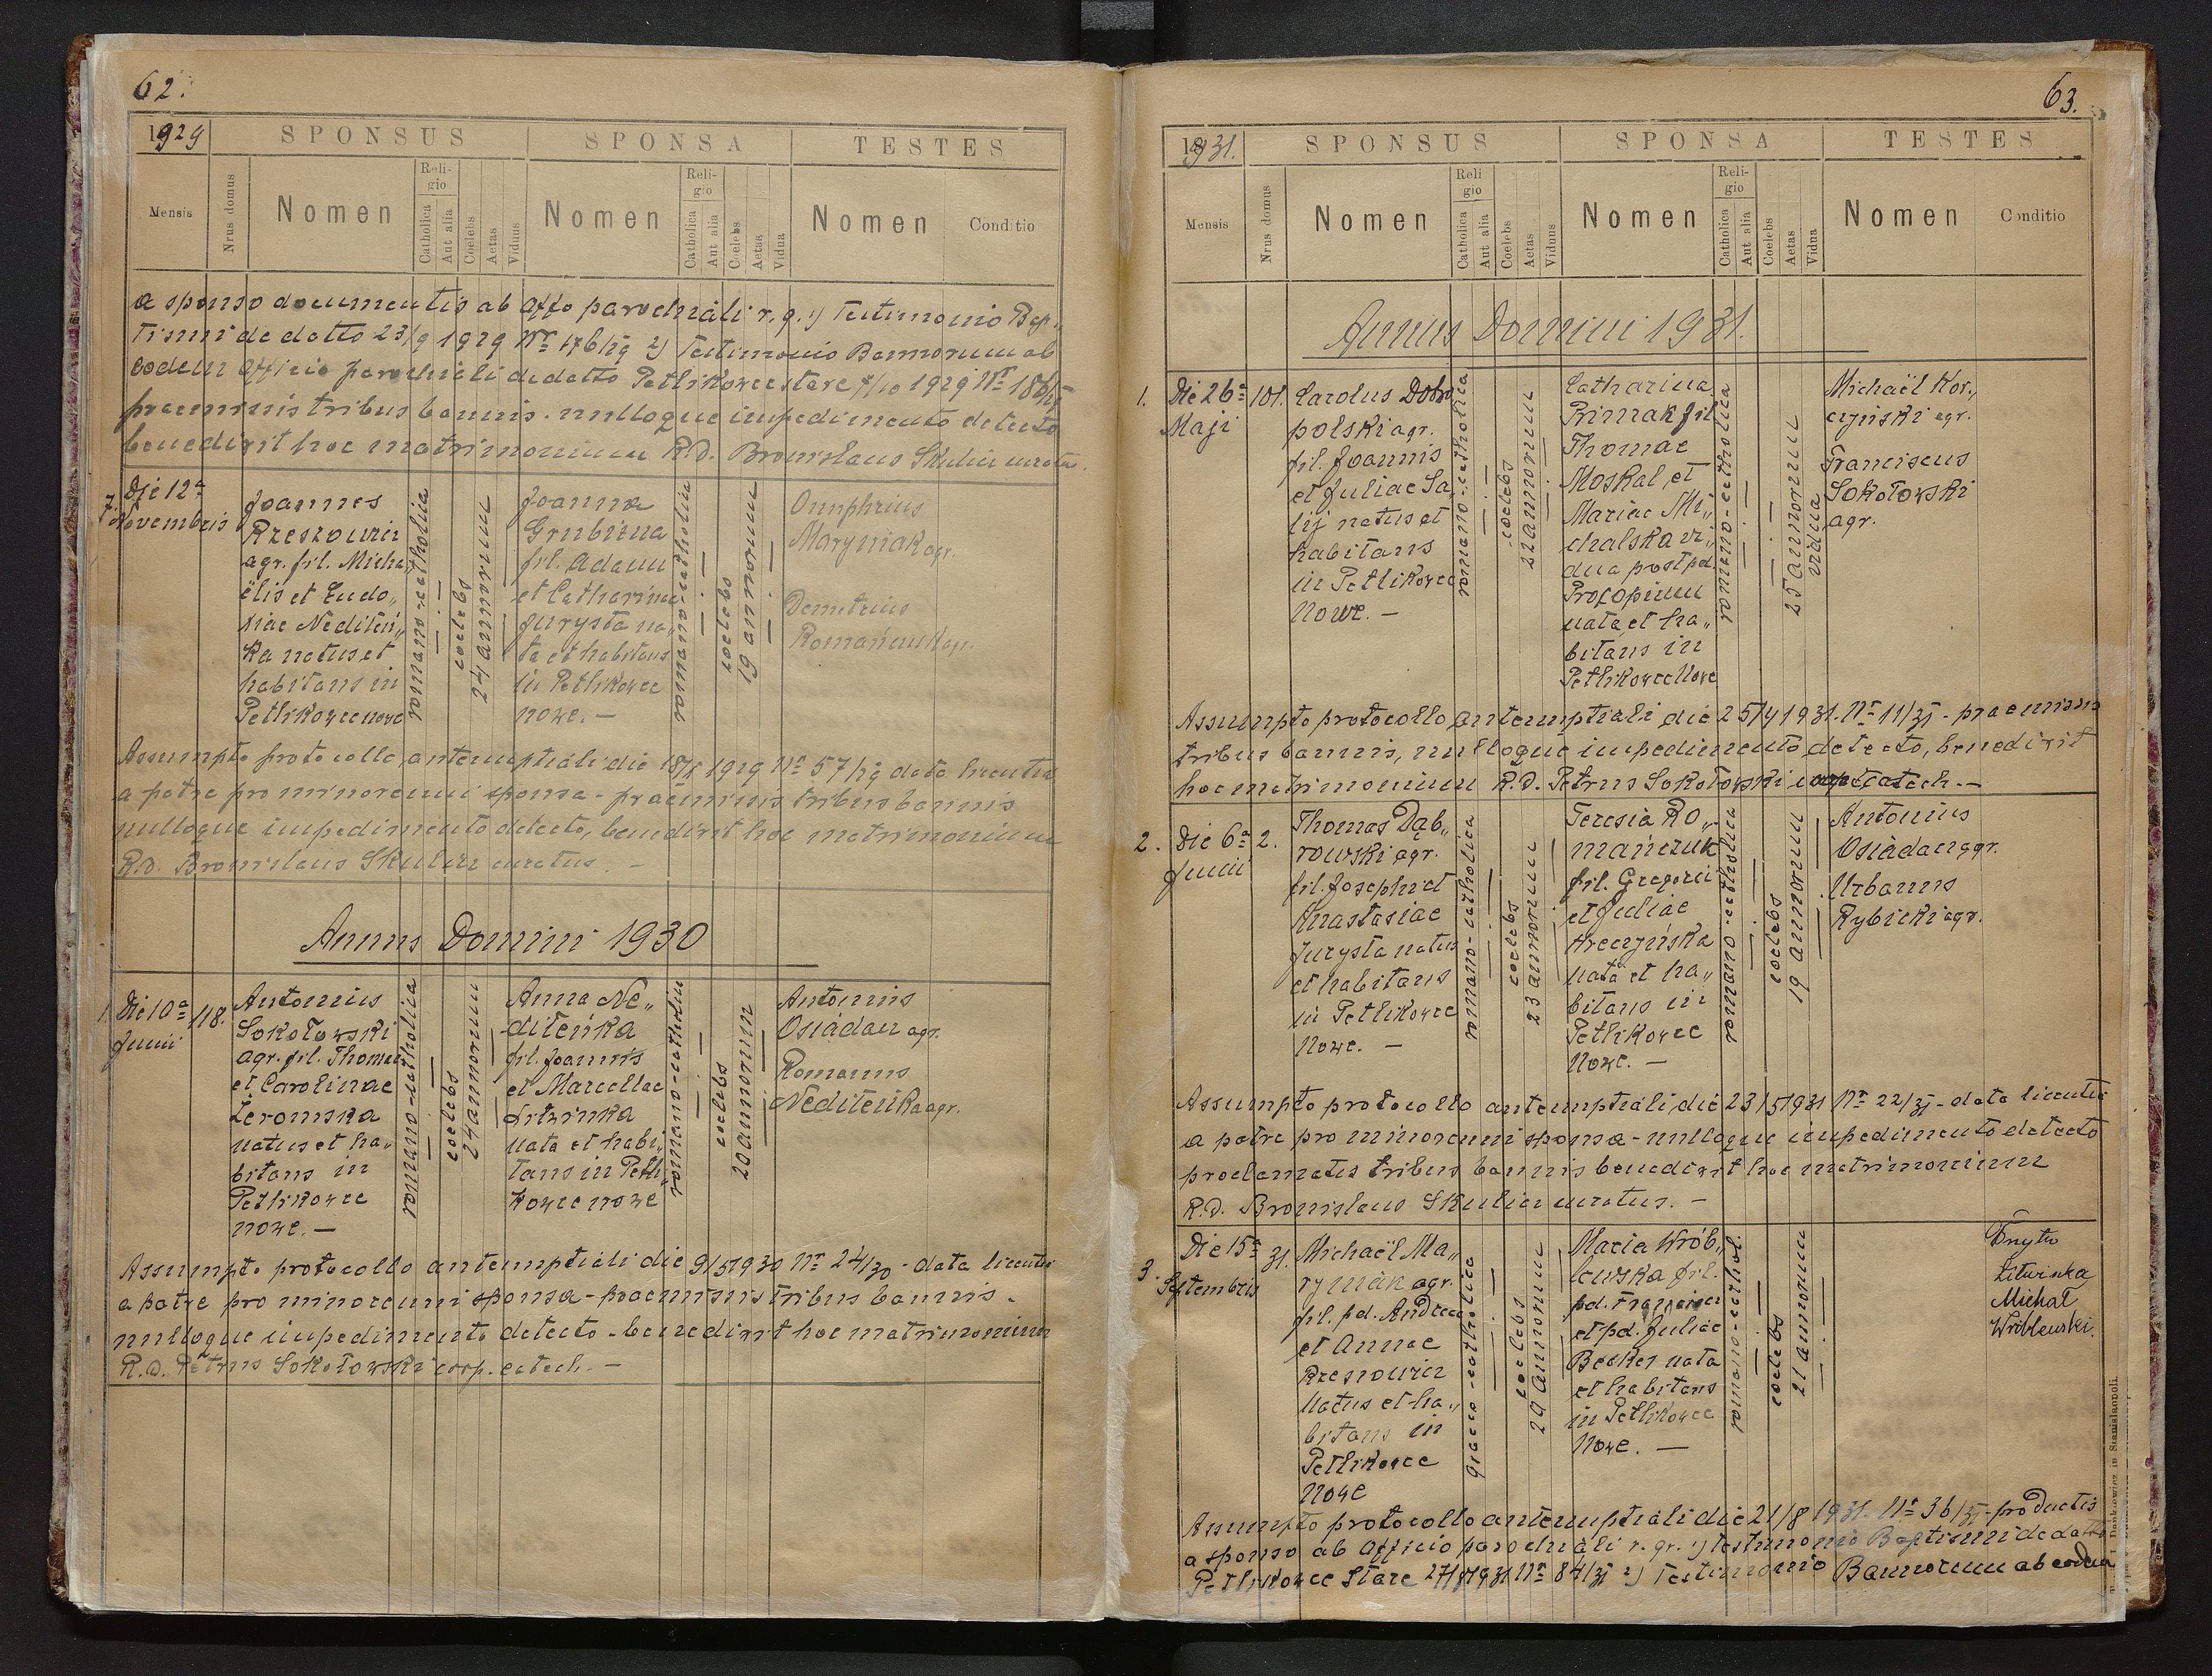 62.
1929
SPONSUS
SPONSA
TESTES
Mensis
Nrus domus
Nomen
Religio
Catholica
Aut alia
Coelebs
Aetas
Viduus
Nomen
Religio
Catholica
Aut alia
Coelebs
Aetas
Vidua
Nomen
Conditio
a sponso documentis ab Offo parochiali r. g. 1) Testimonio Bap„
tismi de datto 23/9 1929 Nr 176/29 2) Testimonio Bannorum ab
eodem Officio parochiali de datto Petlikowce stare 1929 Nr
praemissis tribus bannis - nulloque impedimento detecto
benedixit hoc matrimonium R.D. Bronislaus Skulicz curatus.
7.
Die 12a
Novembris
Joannes
Rzeszowicz
agr. fil. Micha
ëlis et Eudo„
xiae Nediteń„
ka natus et
habitans in
Petlikowce nowe
romano-catholica
coelebs
24 annorum
Joanna
Grubizna
fil. Adami
et Catharinae
Jurysta na„
ta et habitans
in Petlikowce
nowe. —
romano-catholica
coelebs
19 annorum
Onuphrius
Maryniak agr.
Demetrius
Romańczuk agr.
Assumpto protocollo antenuptiali die 18/X 1929 Nr 57/29 data licentia
a patre pro minorenni sponsa - praemissis tribus bannis
nulloque impedimento detecto, benedixit hoc matrimonium
R.D. Bronislaus Skulicz curatus. —
Annus Domini 1930
1
Die 10a
Junii
118.
Antonius
Sokołowski
agr. fil. Thomae
et Carolinae
Żeromska
natus et ha„
bitans in
Petlikowce
nowe. —
romano-catholica
coelebs
24 annorum
Anna Ne„
diteńka
fil. Joannis
et Marcellae
Litwinka
nata et habi„
tans in Petli„
kowce nowe
romano-catholica
coelebs
20 annorum
Antonius
Osiadacz agr.
Romanus
Nediteńka agr.
Assumpto protocollo antenuptiali die 9/5 1930 Nr 24/30 - data licentia
a patre pro minorenni sponsa - praemissis tribus bannis -
nulloque impedimento detecto - benedixit hoc matrimonium
R.D. Petrus Sokołowski coop. catech. —
63.
1931.
SPONSUS
SPONSA
TESTES
Mensis
Nrus domus
Nomen
Religio
Catholica
Aut alia
Coelebs
Aetas
Viduus
Nomen
Religio
Catholica
Aut alia
Coelebs
Aetas
Vidua
Nomen
Conditio
Annus Domini 1931.
1.
Die 26a
Maji
101.
Carolus Dobro
polski agr.
fil. Joannis
et Juliae Sa„
lij natus et
habitans
in Petlikowce
Nowe. —
romano-catholica
coelebs
22 annorum
Catharina
Primak fil.
Thomae
Moskal et
Mariae Mi„
chalska vi„
dua post pd.
Procopium
nata et ha„
bitans in
Petlikowce Nowe
romano-catholica
25 annorum
vidua
Michaël Kor„
czyński agr.
Franciscus
Sokołowski
agr.
Assumpto protocollo antenuptiali die 25/4 1931. Nr 11/31 - praemissis
tribus bannis, nulloque impedimento detecto, benedixit
hoc matrimonium R.D. Petrus Sokołowski coop. catech. —
2.
Die 6a
Junii
2.
Thomas Dąb„
rowski agr.
fil. Josephi et
Anastasiae
Jurysta natus
et habitans
in Petlikowce
Nowe. —
romano-catholica
coelebs
23 annorum
Teresia Ro„
mańczuk
fil. Gregorii
et Juliae
Kreczyńska
nata et ha„
bitans in
Petlikowce
Nowe. —
romano-catholica
coelebs
19 annorum
Antonius
Osiadacz agr.
Urbanus
Rybicki agr.
Assumpto protocollo antenuptiali die 23/5 1931 Nr 22/31 - data licentia
a patre pro minorenni sponsa - nulloque impedimento detecto
proclamatis tribus bannis benedixit hoc matrimonium
R.D. Bronislaus Skulicz curatus. —
3.
Die 15a
Septembris
31.
Michaël Ma„
ryniak agr.
fil. pd. Andreae
et Annae
Rzeszowicz
natus et ha„
bitans in
Petlikowce
Nowe
graeco-catholica
coelebs
29 annorum
Maria Wrób„
lewska fil.
pd. Francisci
et pd. Juliae
Becker nata
et habitans
in Petlikowce
Nowe. —
romano-cathol.
coelebs
21 annorum
Dmytro
Litwinka
Michał
Wróblewski.
Assumpto protocollo antenuptiali die 21/8 1931. Nr 36/31 - productis
a sponso ab Officio parochiali r. gr. 1) testimonio Baptismi de datto
Petlikowce Stare 27/8 1931 Nr 84/31 2) Testimonio Bannorum ab eodem
in Stanislaopoli.